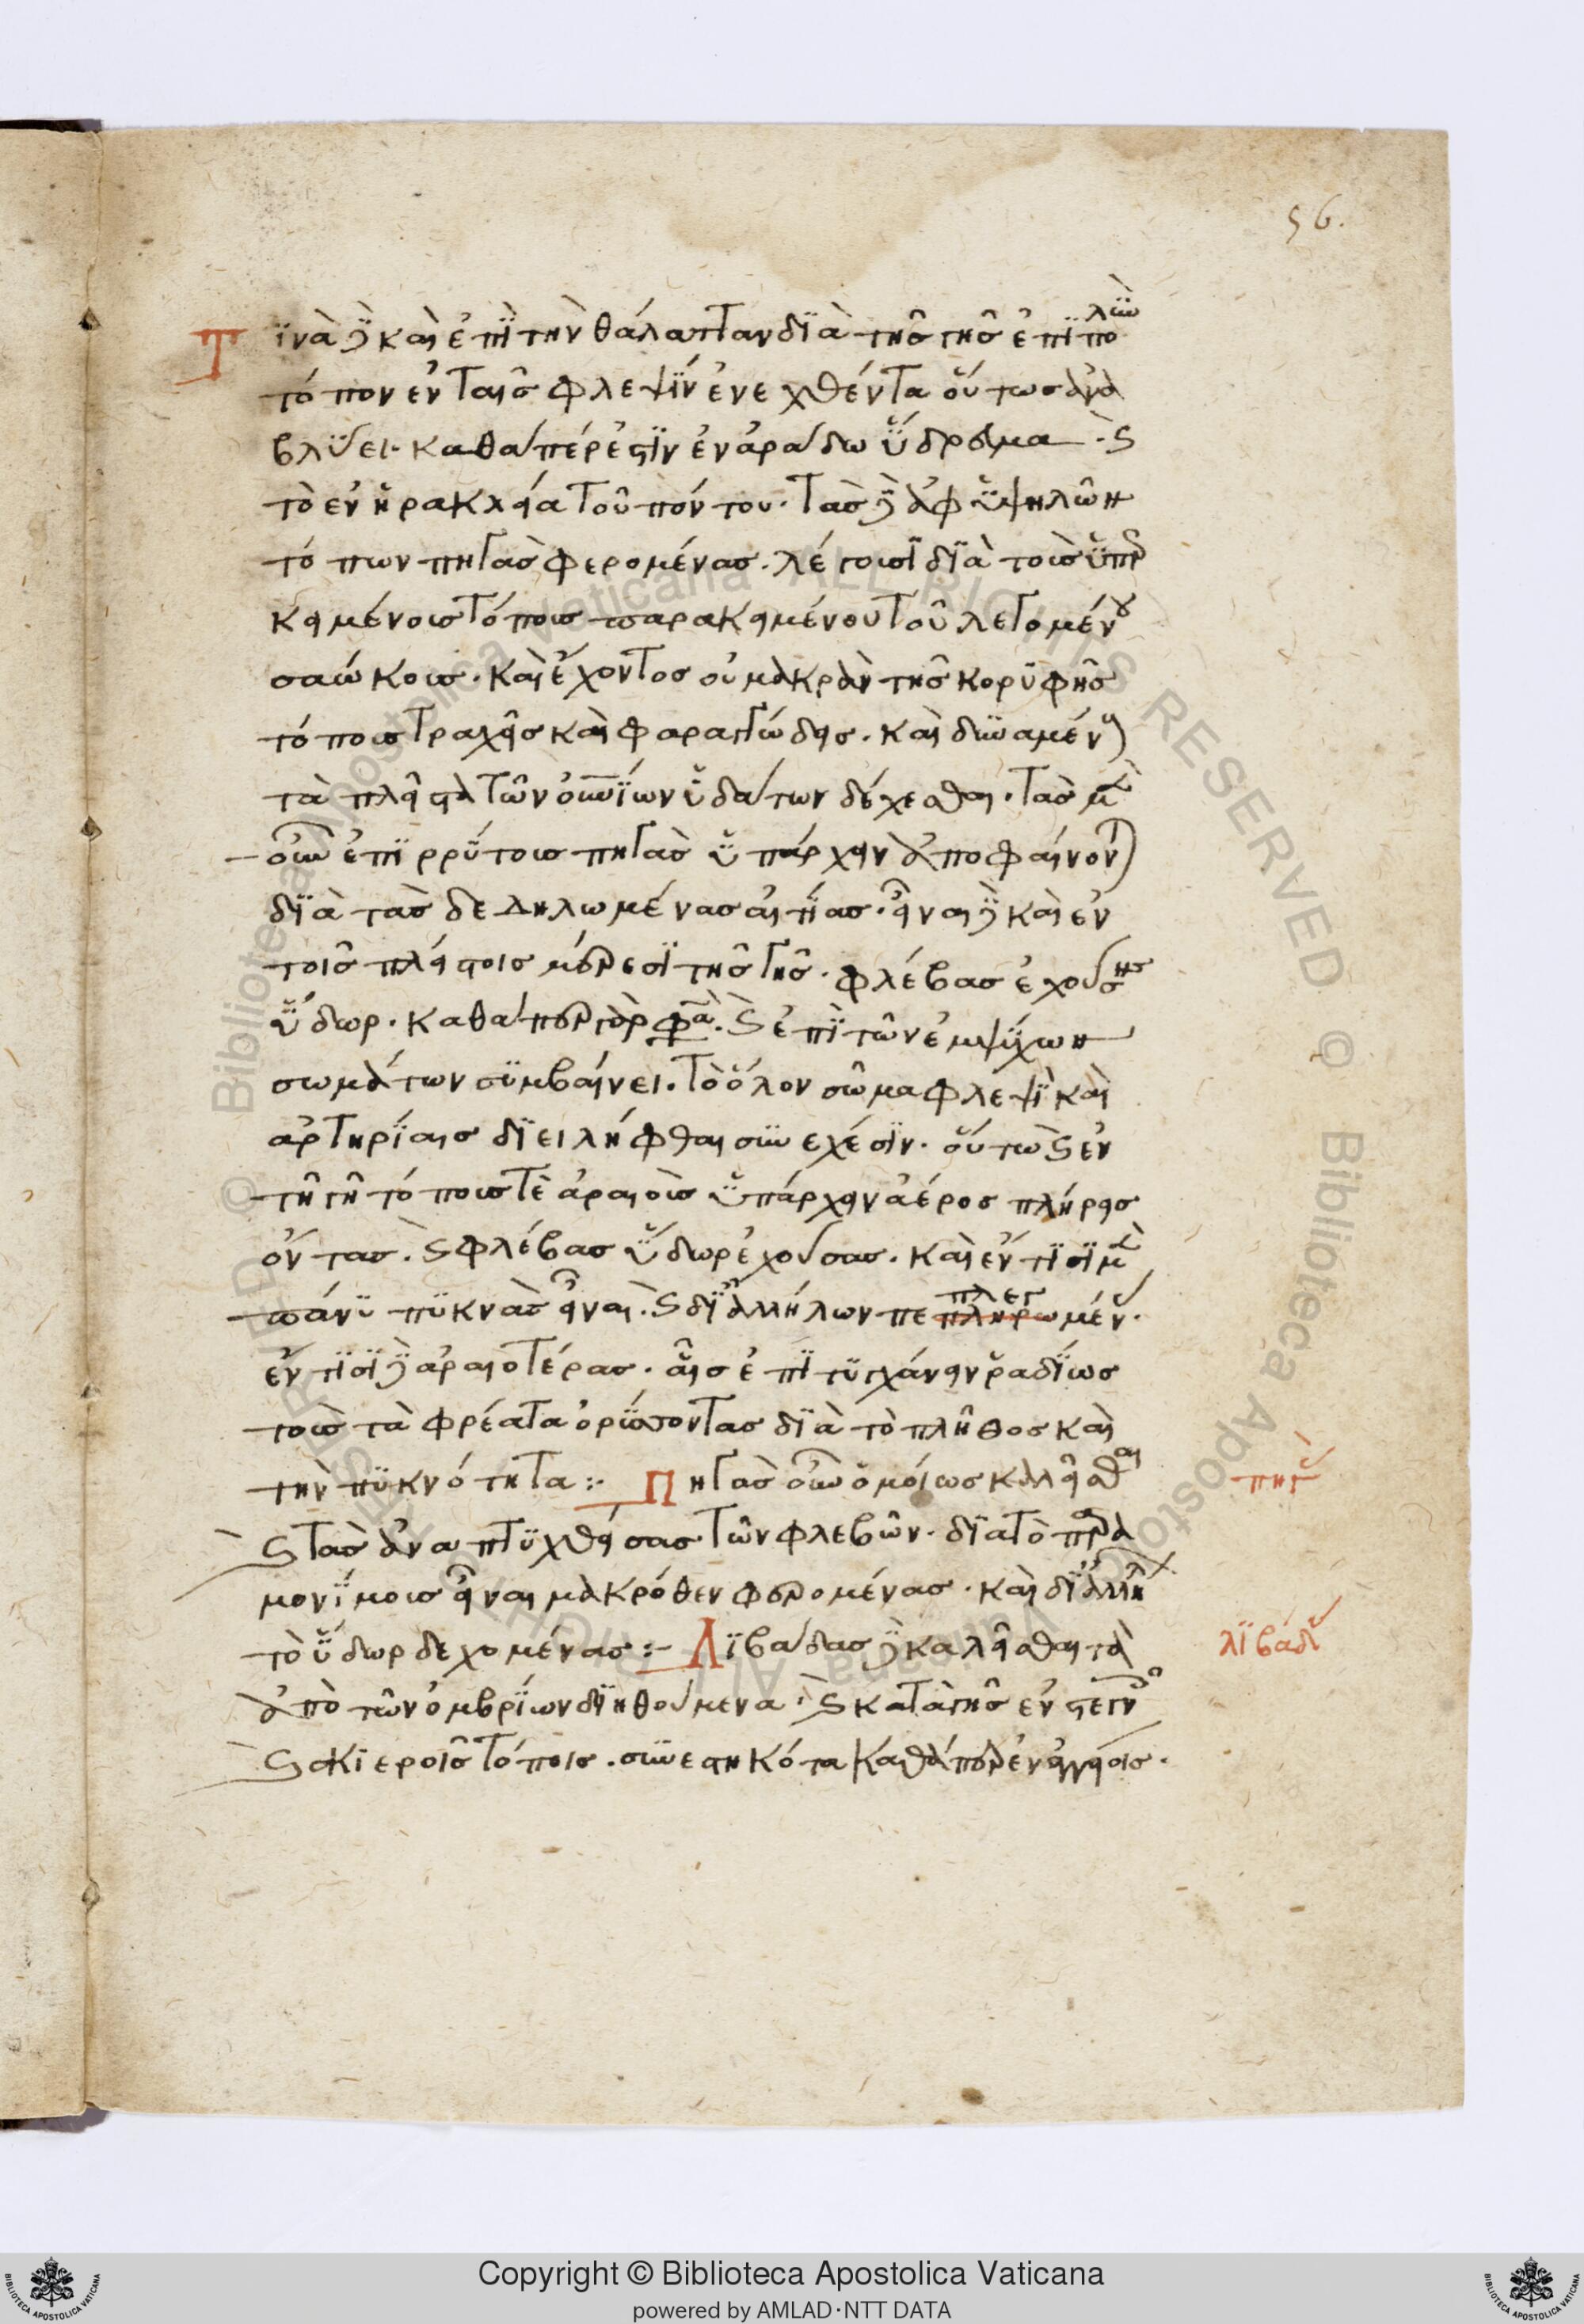 56.
Τϊνὰ δὲ καὶ ἐπῒ τὴν θάλατταν δϊὰ τῆς γῆς ἐπϊπολὺν
τόπον ἐν ταῖς φλεψῒν ἐνεχθέντα οὕτως ἀνα
βλΰει· καθάπέρ ἐστϊν ἐν ἀράδω ὕδρευμα· καὶ
τὸ ἐν ἡρακλεία τοῦ πόντου· τὰς δὲ ἀφ ὑψηλῶν
τόπων πηγὰς φερομένας· λέγουσϊ δϊὰ τοὺς ὑπερ
κειμένους τόπους παρακειμένου τοῦ λεγομέν
καὶ ἔχοντος οὐ μακρὰν τῆς κορυφῆς
τόπους τραχεῖς καὶ φαραγγώδεις· καὶ δυναμέν
τὰ πλεῖστα τῶν οὐρανΐων ὑδάτων δέχεσθαι· τὰς μὲν
οὖν ἐπϊρρΰτους πηγὰς ὑπάρχειν ἀποφαίνον
δϊὰ τὰς δεδηλωμένας αἰτΐας· εἶναι δὲ καὶ ἐν
τοῖς πλείστοις μέρεσϊ τῆς γῆς· φλέβας ἐχούσης
ὕδωρ· καθάπερ γὰρ φασὶ· καὶ ἐπῒ τῶν ἐμψΰχων
σωμάτων συμβαίνει· τὸ ὅλον σῶμα φλεψῒ καὶ
ἀρτηρΐαις δϊειλῆφθαι συνεχέσϊν· οὕτω καὶ ἐν
τῆ γῆ τόπους τὲ ἀραιοὺς ὑπάρχειν ἀέρος πλήρεις
ὄντας· καὶ φλέβας ὕδωρ ἐχούσας· καὶ ἔν τϊσϊ μὲν
πάνυ πυκνὰς εἶναι· καὶ δϊ ἀλλήλων πεπληρωμέν·
πλεγ
ἔν τϊσϊ δὲ ἀραιοτέρας· αἷς ἐπϊτυγχάνειν ῥαδΐως
τοὺς τὰ φρέατα ὀρύσσοντας δϊὰ τὸ πλῆθος καὶ
τὴν πυκνότητα :· Πηγὰς οὖν ὁμοίως καλεῖσθαι
καὶ τὰς ἀναπτυχθείσας τῶν φλεβῶν· δϊὰ τὸ παρα
μονΐμους εἶναι μακρόθεν φερομένας· καὶ δϊ ἀλλήλ
τὸ ὕδωρ δεχομένας :– Λϊβάδας δὲ καλεῖσθαι τὰ
ἀπὸ τῶν ὀμβρΐων δϊηθούμενα· καὶ κατὰ γῆς ἐν στεγν
καὶ σκϊεροῖς τόποις· συνεστηκότα καθάπερ ἐν ἀγγείοις·
πηγ
λϊβάδ
Copyright © Biblioteca Apostolica Vaticana
powered by AMLAD·NTT DATA